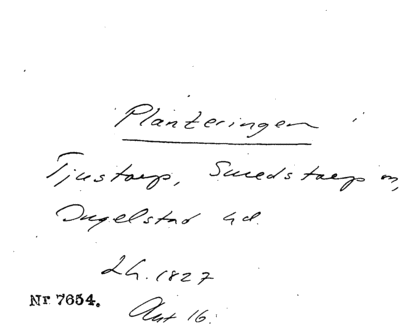 Planteringen i
Tjustorp, Smedstorp sn,
Ingelstad hd.
LH. 1827
Nr 7654.
Ant 16.